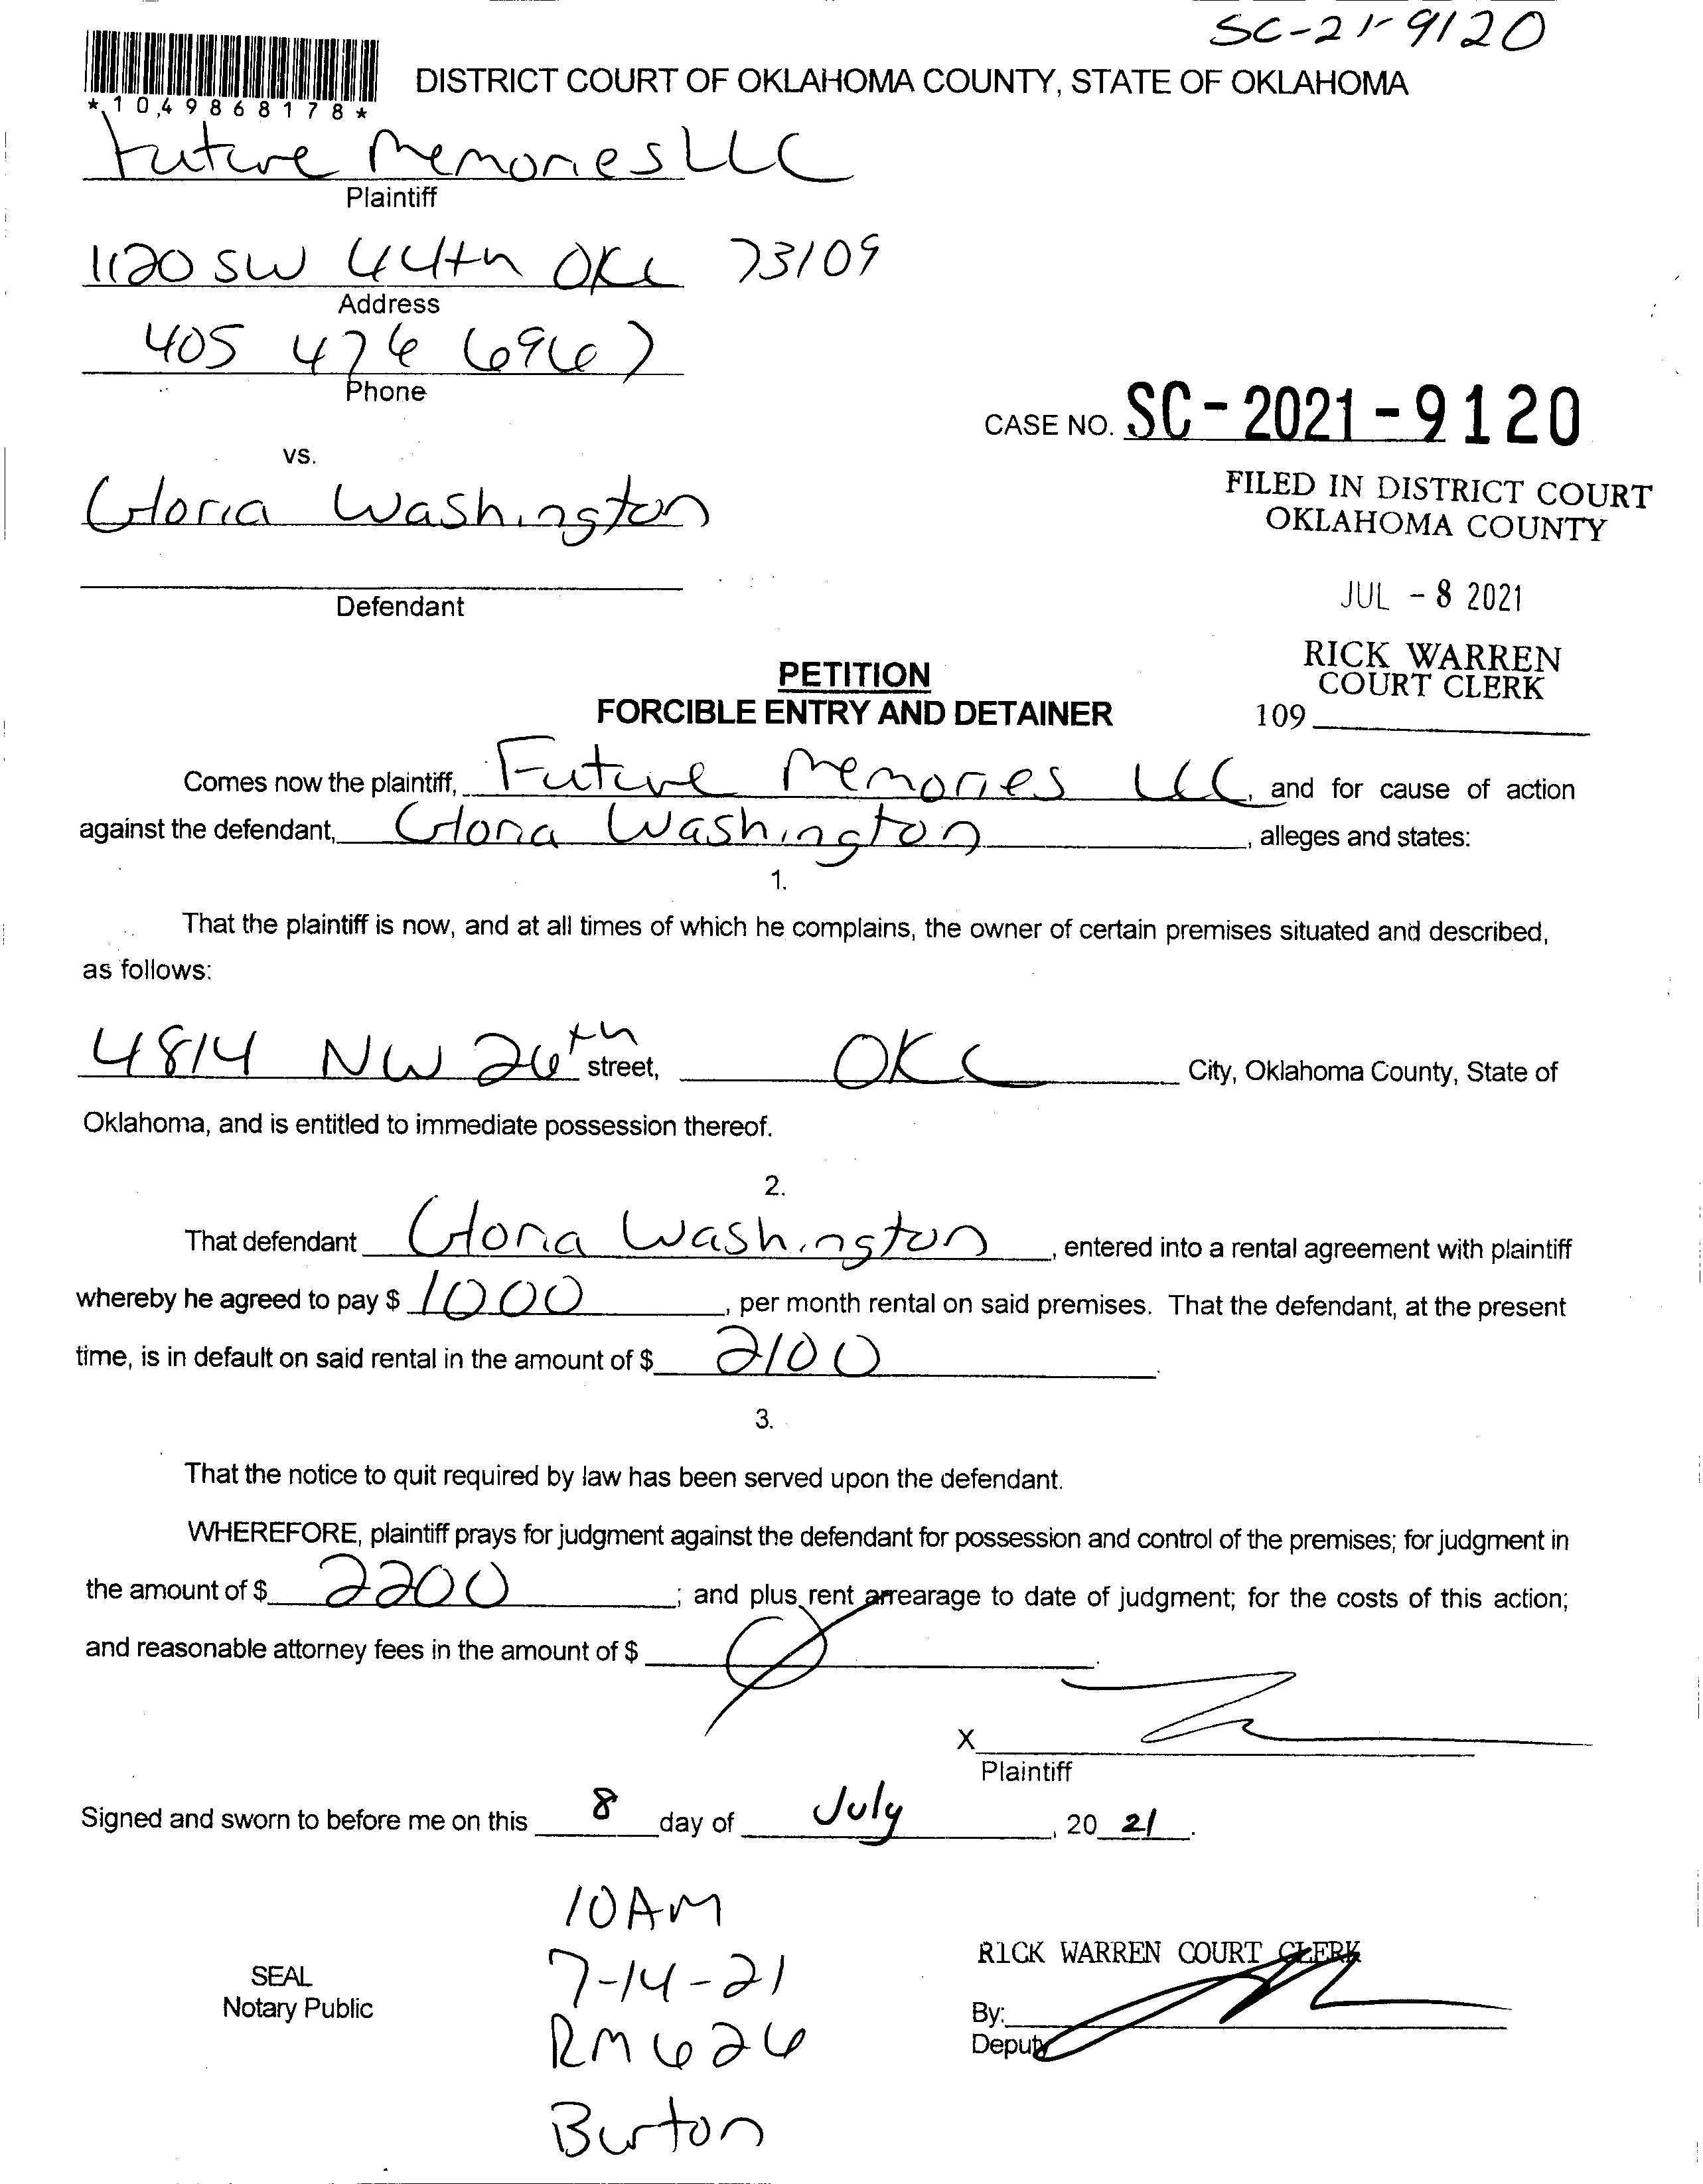 SC-21-9120
*1049868178*
DISTRICT COURT OF OKLAHOMA COUNTY, STATE OF OKLAHOMA
Future Memories LLC
Plaintiff
1120 SW 44th OKC 73109
Address
405 476 6967
Phone
CASE NO. SC-2021-9120
vs.
Gloria Washington
FILED IN DISTRICT COURT
OKLAHOMA COUNTY
Defendant
JUL -8 2021
RICK WARREN
COURT CLERK
109
PETITION
FORCIBLE ENTRY AND DETAINER
Comes now the plaintiff, Future Memories LLC, and for cause of action
against the defendant, Gloria Washington, alleges and states:
1.
That the plaintiff is now, and at all times of which he complains, the owner of certain premises situated and described,
as follows:
4814 NW 26th street, OKC City, Oklahoma County, State of
Oklahoma, and is entitled to immediate possession thereof.
2.
That defendant Gloria Washington, entered into a rental agreement with plaintiff
whereby he agreed to pay $ 1000, per month rental on said premises. That the defendant, at the present
time, is in default on said rental in the amount of $ 2100.
3.
That the notice to quit required by law has been served upon the defendant.
WHEREFORE, plaintiff prays for judgment against the defendant for possession and control of the premises; for judgment in
the amount of $ 2200; and plus rent arrearage to date of judgment; for the costs of this action;
and reasonable attorney fees in the amount of $ Ø.
X
Plaintiff
Signed and sworn to before me on this 8 day of July, 20 21.
10AM
7-14-21
RM 626
Burton
SEAL
Notary Public
RICK WARREN COURT CLERK
By:
Deputy